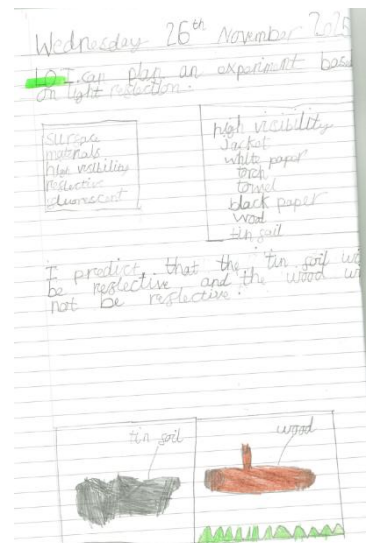 Wednesday 26th November 2025
LO I can plan an experiment based
on light reflection.
surface
materials
high visibility
reflective
fluorescent
high vicibility
Jacket
white paper
torch
towel
black paper
wood
tin foil
I predict that the tin foil wi
be reflective, and the wood wi
not be reflective.
tin foil
wood